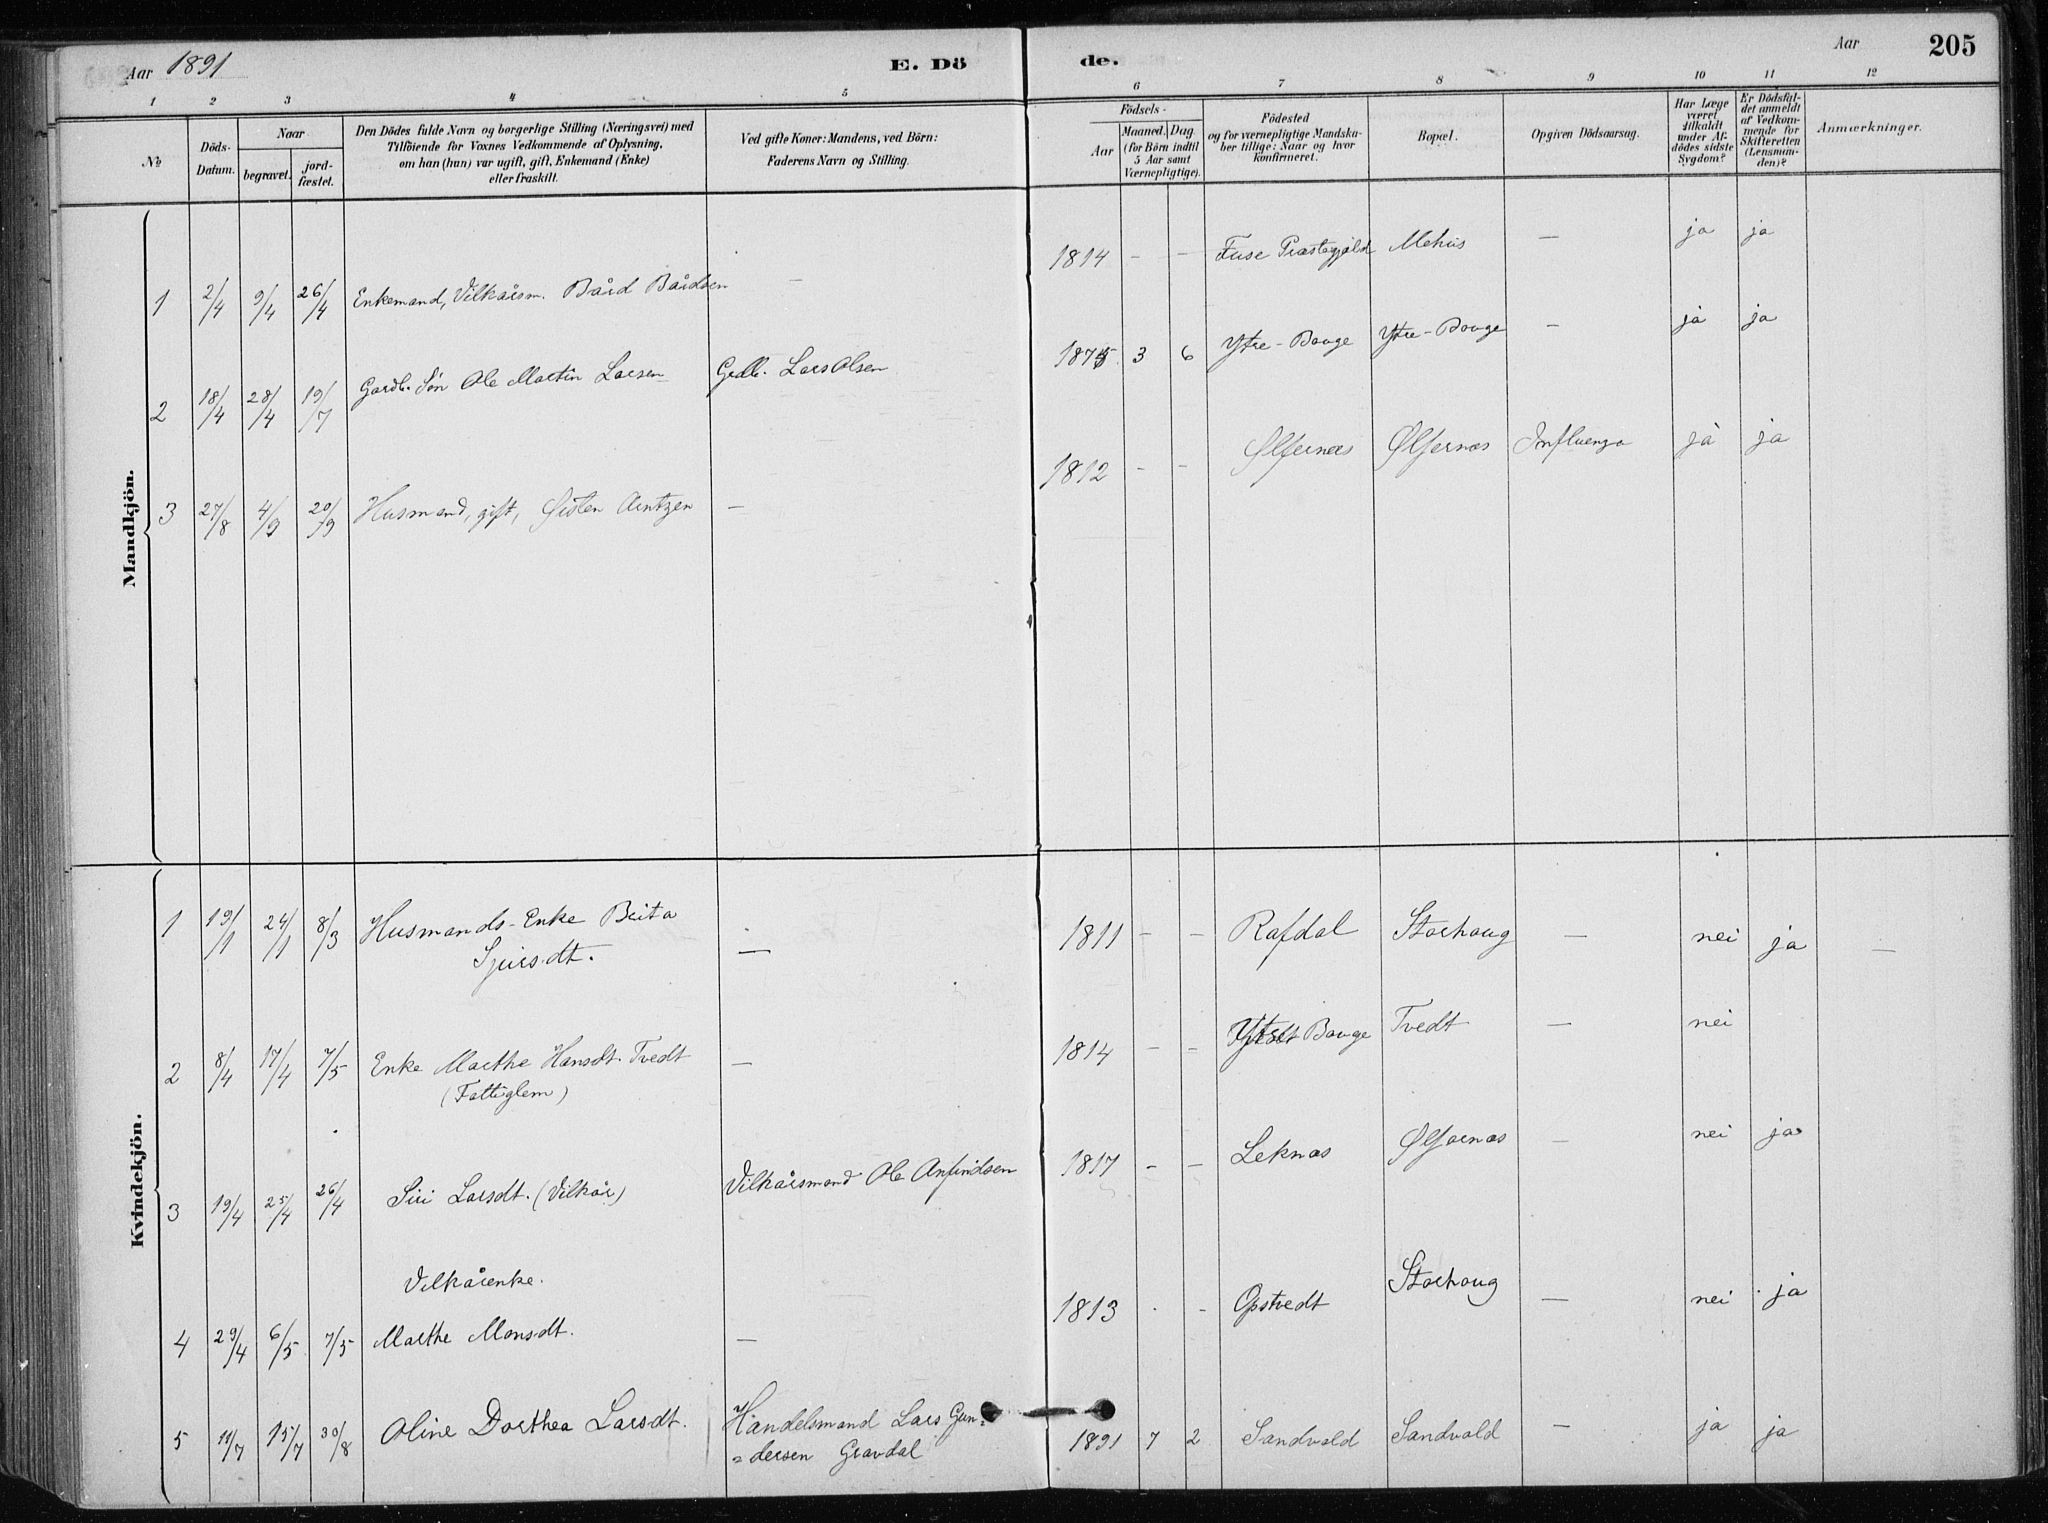 Aar 1891
E. Dö
de.
Aar
205
1 2 3 4 5 6 7 8 9 10 11 12
No
Döds-Datum.
Naar
begravet.
jord-fæstet.
Den Dödes fulde Navn og borgerlige Stilling (Næringsvei) med
Tilföiende for Voxnes Vedkommende af Oplysning,
om han (hun) var ugift, gift, Enkemand (Enke)
eller fraskilt.
Ved gifte Koner: Mandens, ved Börn:
Faderens Navn og Stilling.
Födsels-
Aar
Maaned. Dag
(for Börn indtil
5 Aar samt
Værnepligtige).
Födested
og for værnepligtige Mandska-
ber tillige: Naar og hvor
konfirmeret.
Bopæl.
Opgiven Dödsaarsag.
Har Læge
været
tilkaldt
under Af-
dödes sidste
Sygdom?
Er Dödsfal-
det anmeldt
af Vedkom-
mende for
Skifteretten
(Lensman-
den)?
Anmærkninger.
Mandkjön.
1 2/4 9/4 26/4 Enkemand, Vilkårsm. Bård Bårdsen — 1814 — — Fuse Præstegjæld Mehus — ja ja
2 18/4 28/4 19/7 Gardb. Søn Ole Martin Larsen Grdb. Lars Olsen 1875 3 6 Ytre-Bouge Ytre-Bouge — ja ja
3 27/8 4/9 20/9 Husmand, gift, Østen Arntzen — 1812 — — Ølfernæs Ølfernæs Influenza ja ja
Kvindekjön.
1 19/1 24/1 8/3 Husmands-Enke Brita
Sjursdt. — 1811 — — Rafdal Storhoug — nei ja —
2 8/4 17/4 7/5 Enke Marthe Hansdt. Tvedt
(Fattiglem) — 1814 — — Ytre Bouge Tvedt — nei
3 19/4 25/4 26/4 Siri Larsdt. (Vilkår) Vilkårsmand Ole Anfindsen 1817 — — Leknæs Ølfernæs — nei ja
Vilkårenke.
4 29/4 6/5 7/5 Marthe Monsdt. — 1813 - - Opstvedt Storhoug — nei ja
5 11/7 15/7 30/8 Oline Dorthea Larsdt. Handelsmand Lars Gun=
=dersen Gravdal 1891 7 2 Sandvold Sandvold — ja ja